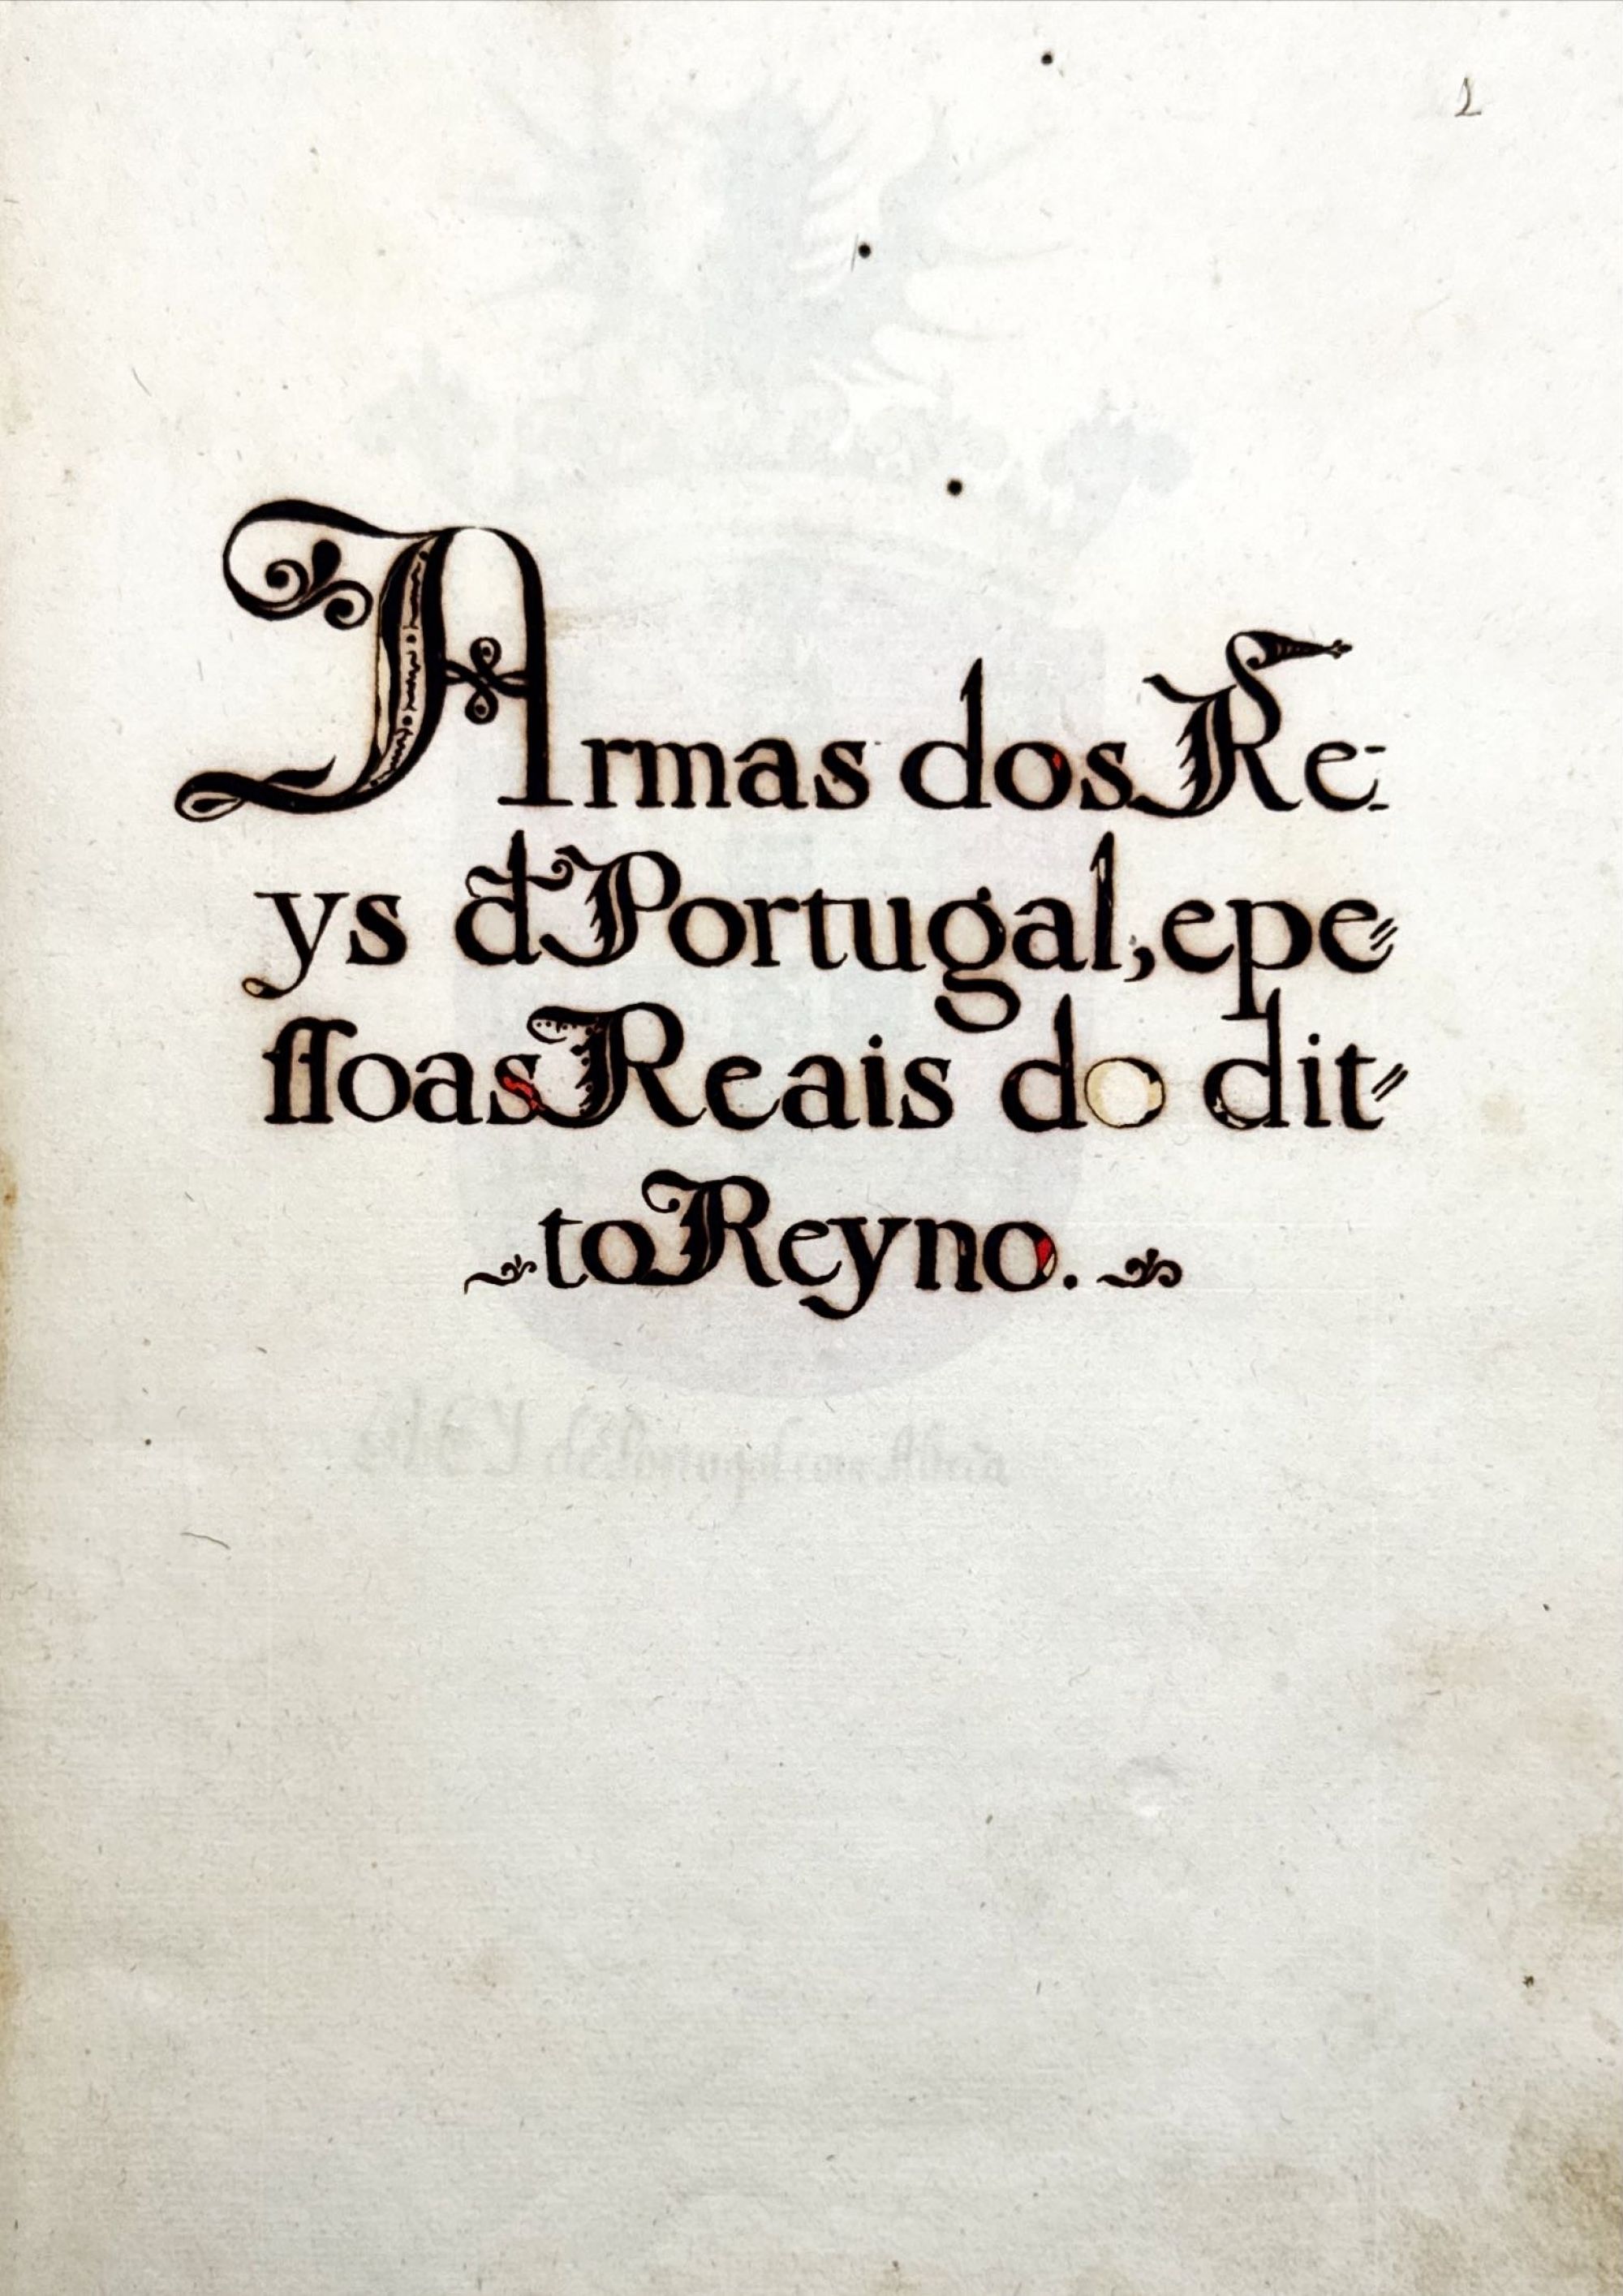 1
Armas dos Re-
ys đ Portugal, e pe=
ſſoas Reais do dit=
to Reyno.